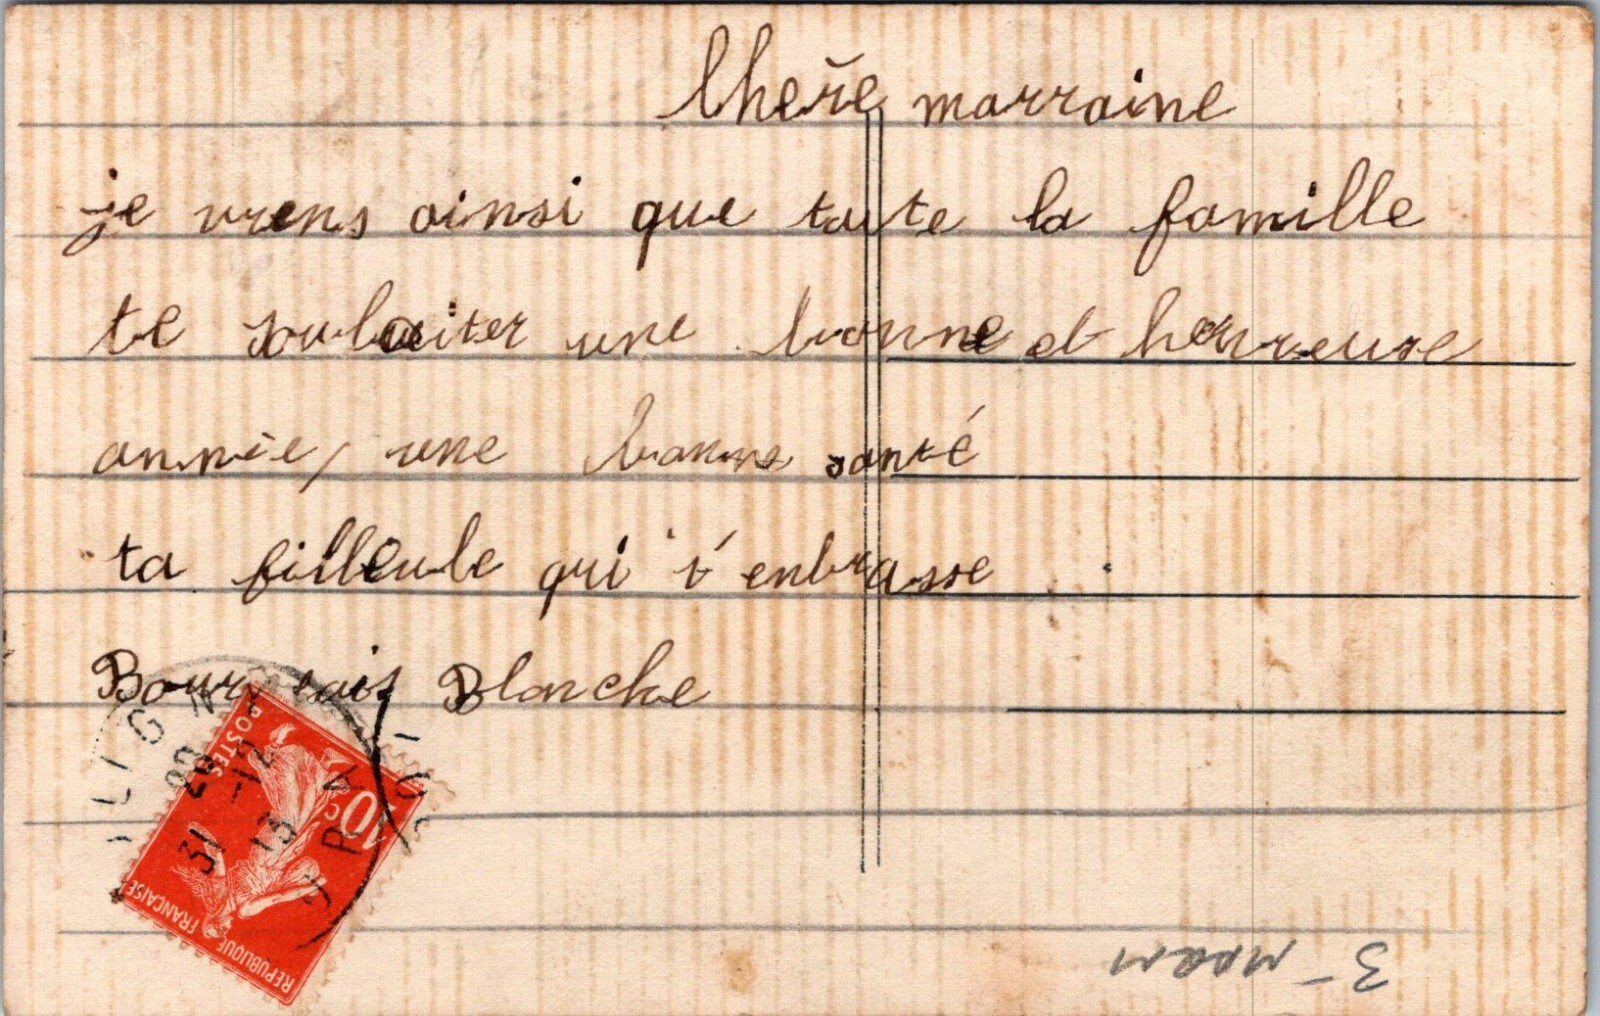 Chère marraine
je viens ainsi que toute la famille
te souhaiter une bonne et heureuse
année, une bonne santé
ta filleule qui t'enbrasse
Blanche
POSTES
10 c
REPUBLIQUE FRANÇAISE
31 -12
13